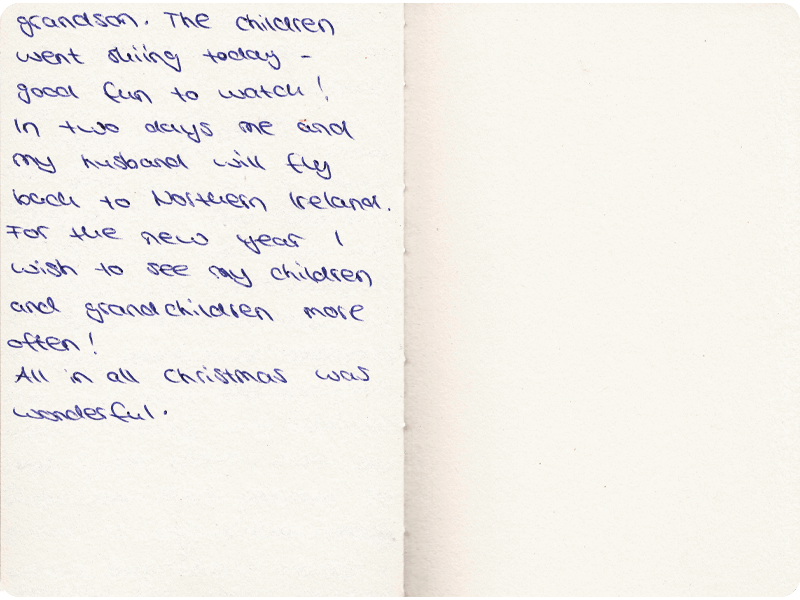 grandson. The children
went skiing today -
good fun to watch!
In two days me and
my husband will fly
back to Northern Ireland.
For the new year I
wish to see my children
and grandchildren more
often!
All in all Christmas was
wonderful.